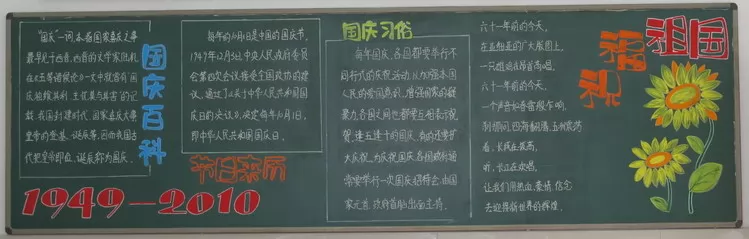 "国庆"一词,本指国家喜庆之事
最早见于西晋。西晋的文学家陆机
在《五等诸侯论》一文中就曾有"国
庆独飨其利,主忧莫与其害"的记
载、我国封建时代、国家喜庆大事
皇帝的登基、诞辰等。因而我国古
代把皇帝即位、诞辰称为国庆。
国庆百科
1949-2010
每年的10月1日是中国的国庆节。
1949年12月3日,中央人民政府委员
会第四次会议接受全国政协的建
议。通过了《关于中华人民共和国国
庆日的决议》,决定每年10月1日,
即中华人民共和国国庆日。
节日来历
国庆习俗
每年国庆,各国都要举行不
同形式的庆祝活动,以加强本国
人民的爱国意识,增强国家的凝
聚力。各国之间也都要互相表示祝
贺。逢五逢十的国庆,有的还要扩
大庆祝。为庆祝国庆,各国政府通
常要举行一次国庆招待会,由国
家元首、政府首脑出面主持。
六十一年前的今天,
在
广大版图上,
一只
高唱。
六十一年前的今天,
一个声音如春雷般乍响,
刹那间,四海翻涌,五州震荡
看,长城在
听,长江在欢唱。
让我们用热血、豪情、信念
去迎接新世界的辉煌。
祝福祖国